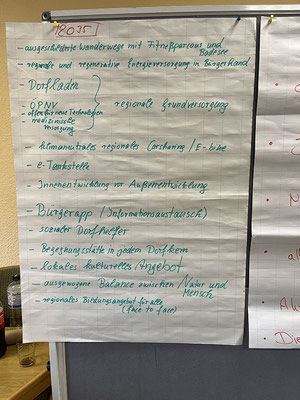 2035 I
- ausgeschilderte Wanderwege mit Fitneßparcour und
Badesee
- regionale und regenerative Energieversorgung in Bürgerhand
- Dorfladen
- ÖPNV
regionale Grundversorgung
- offen für neue Technologien
medizinische
Versorgung
- klimaneutrales regionales Carsharing / E-bike
- e-Tankstelle
- Innenentwicklung vor Außenentwicklung
- Bürgerapp / Informationsaustausch)
- sozialer Dorfhelfer
- Begegnungsstätte in jedem Dorfkern
- lokales kulturelles Angebot
- ausgewogene Balance zwischen Natur und
Mensch
- regionales Bildungsangebot für alle
(face to face)